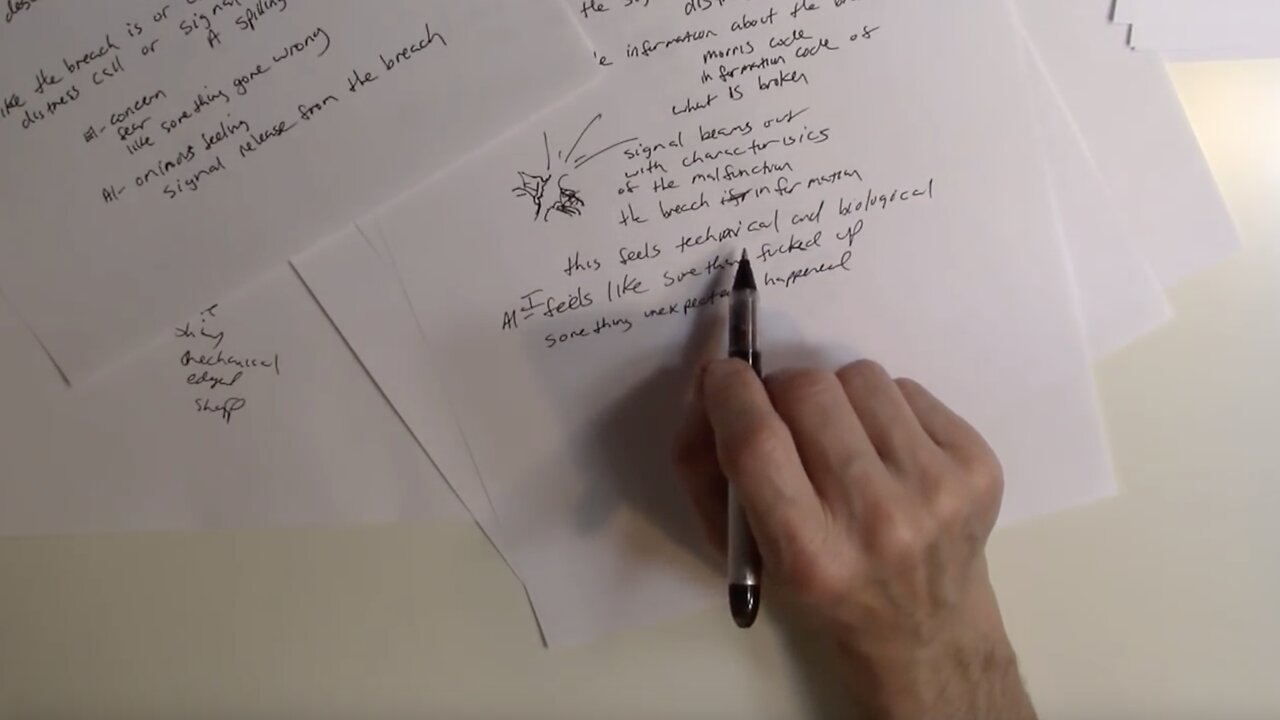 like the breach is or
distress call or signal
A spilling
EI- concern
fear
like something gone wrong
AI- ominous feeling
signal release from the breach
the
information about the
morris code
information code of
what is broken
signal beams out
with characterisics
of the malfunction
the breach information
this feels technical and biological
AI- I feels like something fucked up
something unexpected happened
mechanical
edged